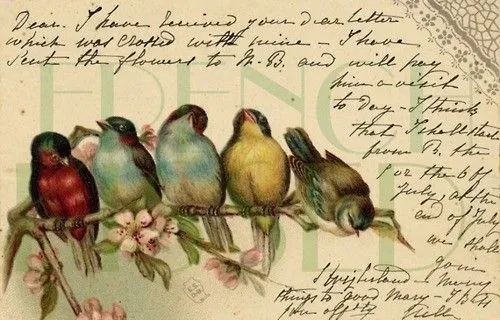 Dear. I have received your dear letter
which was crossed with mine – I have
sent the flowers to M. B. and will pay
him a visit
to day – I think
that I shall start
from B. the
or the 6 of
July, at the
end of July
we shall
join
Many
things to good Mary – I
you off
FRENCH